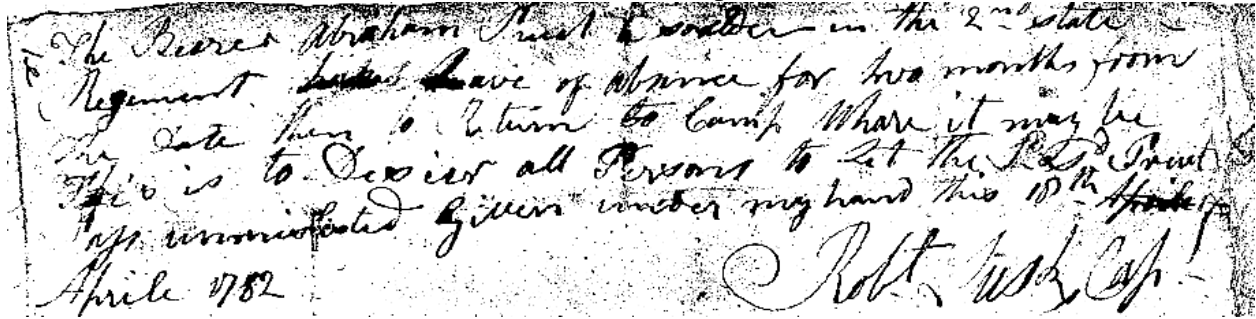 The Bearer Abraham Pruet a soalder in the 2nd state
Regiment leave of absince for two months from
the Date then to Return to Camp Whare it may be
This is to Desier all Persons to Let the Sd Pruet
Pass unmolested Given under my hand this 18th Aprile
Aprile 1782
Robt Cap